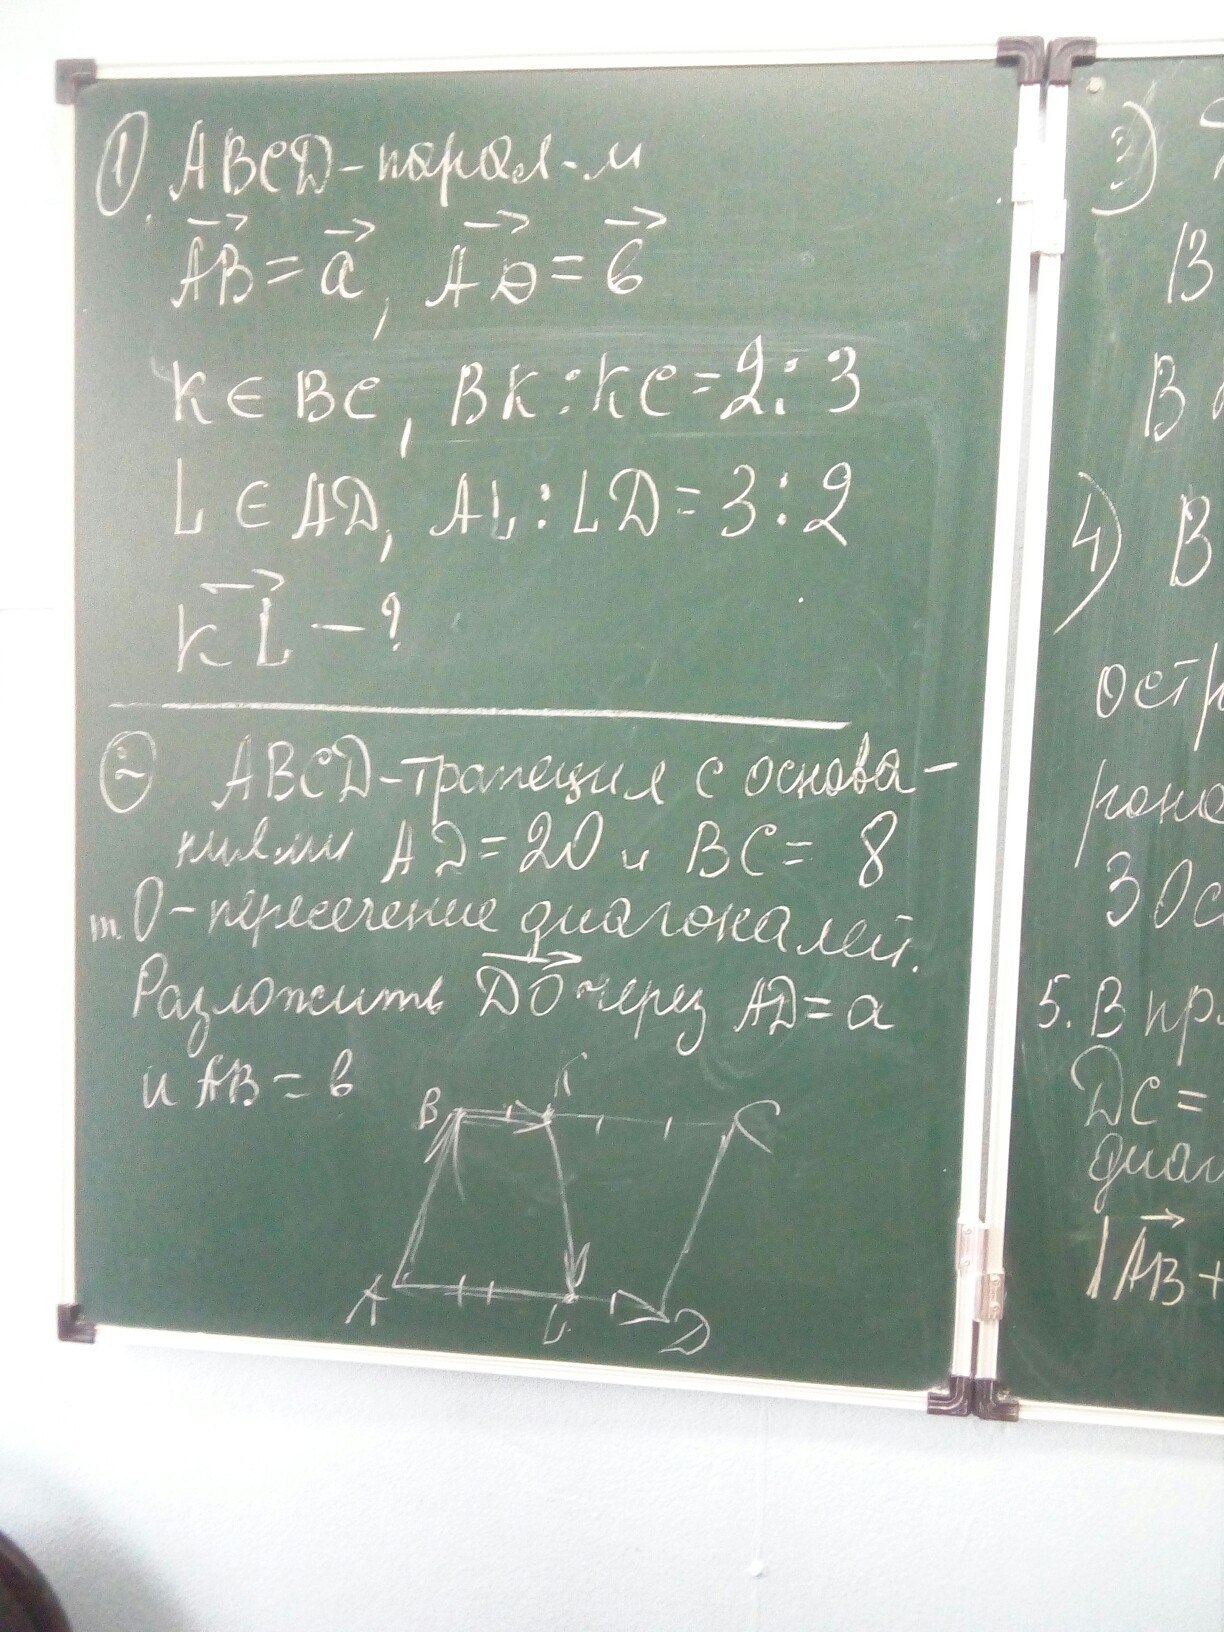 1. ABCD - парал-м
AB = a, AD = в
K ∈ BC, BK : KC = 2 : 3
L ∈ AD, AL : LD = 3 : 2
KL - ?
2 ABCD - трапеция с основа-
ниями AD = 20 и BC = 8
т. O - пересечение диагоналей.
Разложить DO через AD = a
и AB = в
B K C
A L D
3)
B
B
4) B
остр
рона
3 Ос
5. В пр
DC =
диаг
|AB +